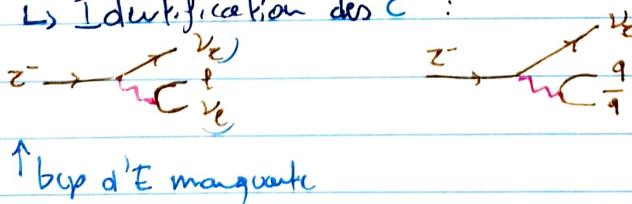 ↳ Identification des τ :
τ⁻ ν_τ ℓ ν_ℓ τ⁻ ν_τ q q̄
↑ bcp d'E manquante